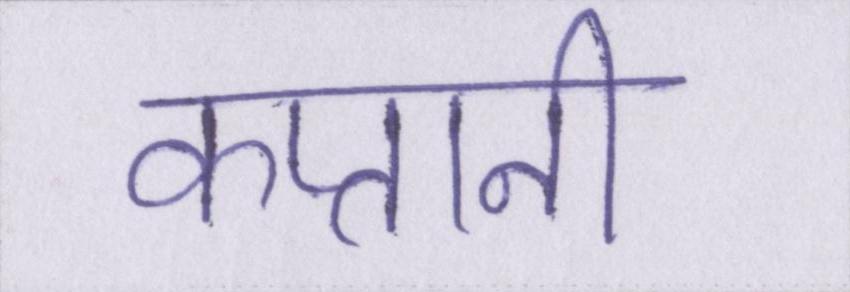 कप्तानी